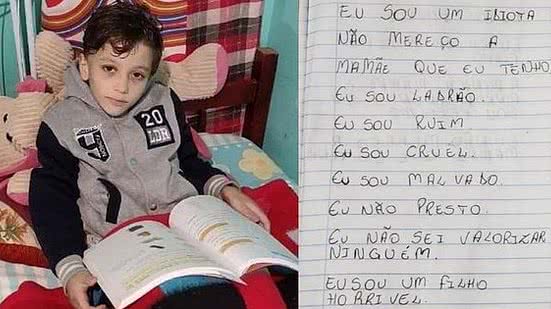 20
LDR
EU SOU UM IDIOTA
NÃO MEREÇO A
MAMÃE QUE EU TENHO
EU SOU LADRÃO.
EU SOU RUIM
EU SOU CRUEL.
EU SOU MALVADO.
EU NÃO PRESTO.
EU NÃO SEI VALORIZAR
NINGUÉM.
EU SOU UM FILHO
HORRIVEL.